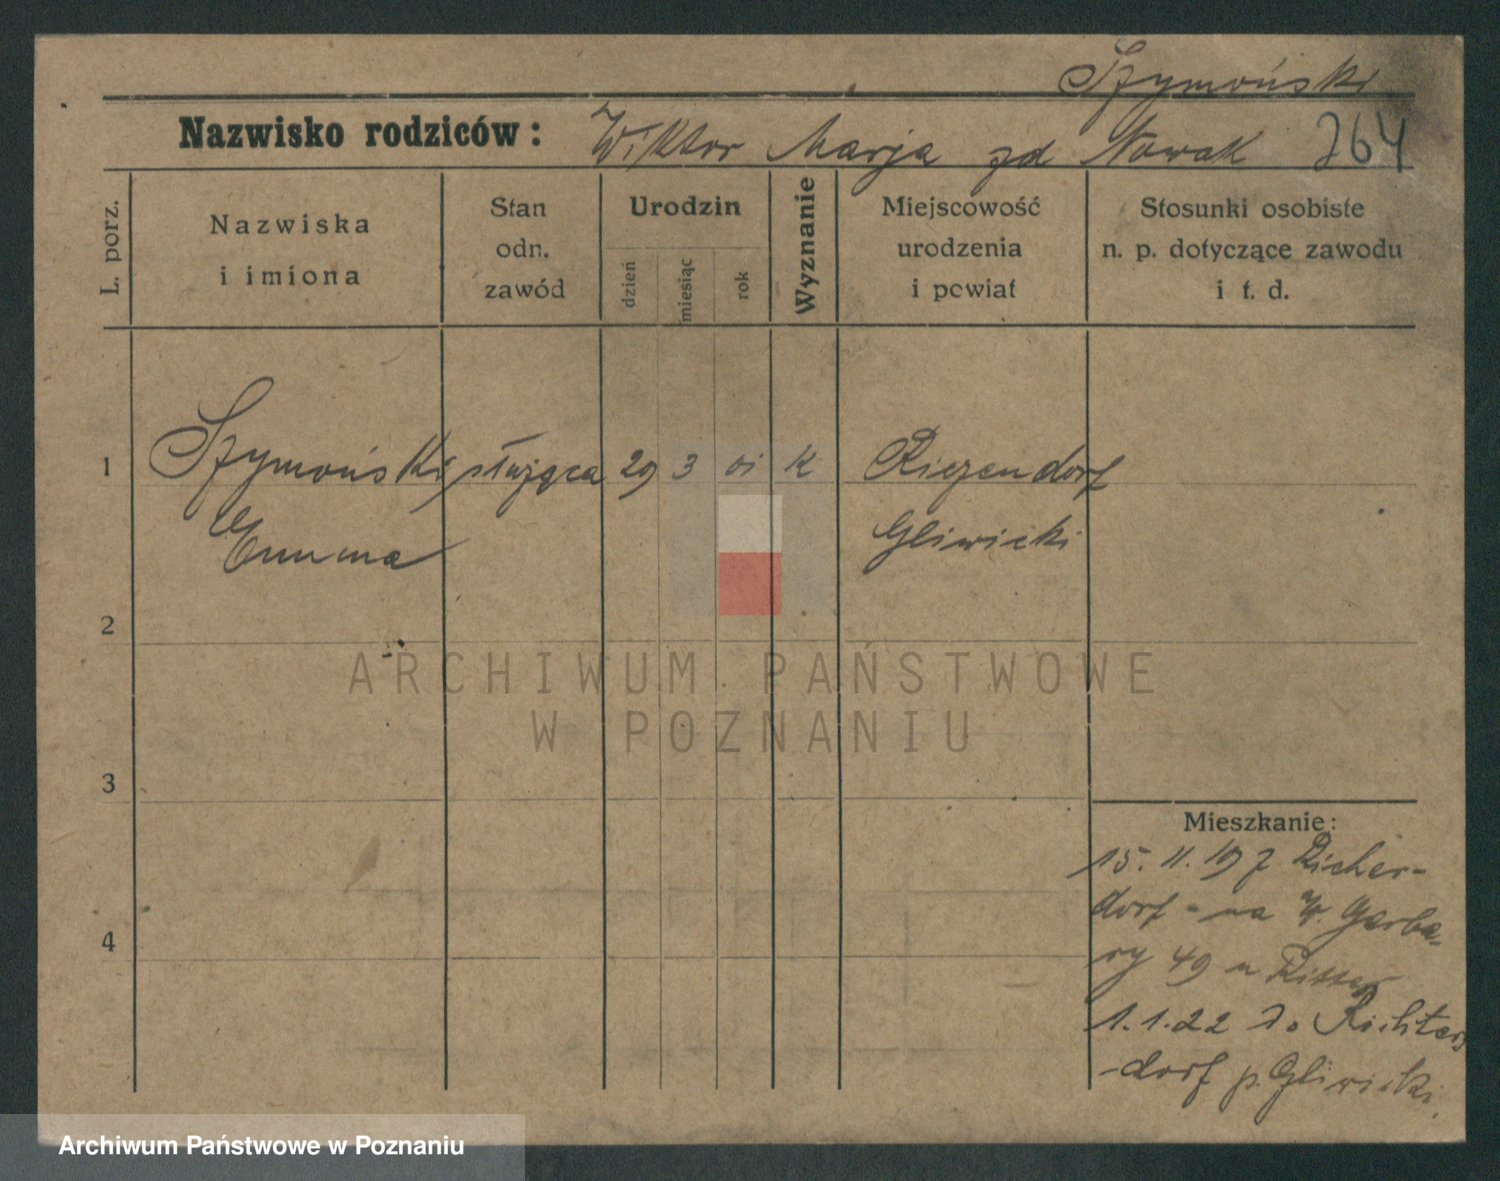 Szymoński
Nazwisko rodziców: Wiktor Marja zd Nowak 764
L. porz.
Nazwiska
i imiona
Stan
odn.
zawód
Urodzin
dzień
miesiąc
rok
Wyznanie
Miejscowość
urodzenia
i powiat
Stosunki osobiste
n. p. dotyczące zawodu
i t. d.
1 Szymoński służąca 29 3 01 K
Emma Gliwicki
2
ARCHIWUM PAŃSTWOWE
W POZNANIU
3
Mieszkanie:
15. 11. 19 z Richer-
dorf - na W. Garba-
4
ry 49 u Ritter
1.1.22 do Richters
-dorf p. Gliwicki.
Archiwum Państwowe w Poznaniu